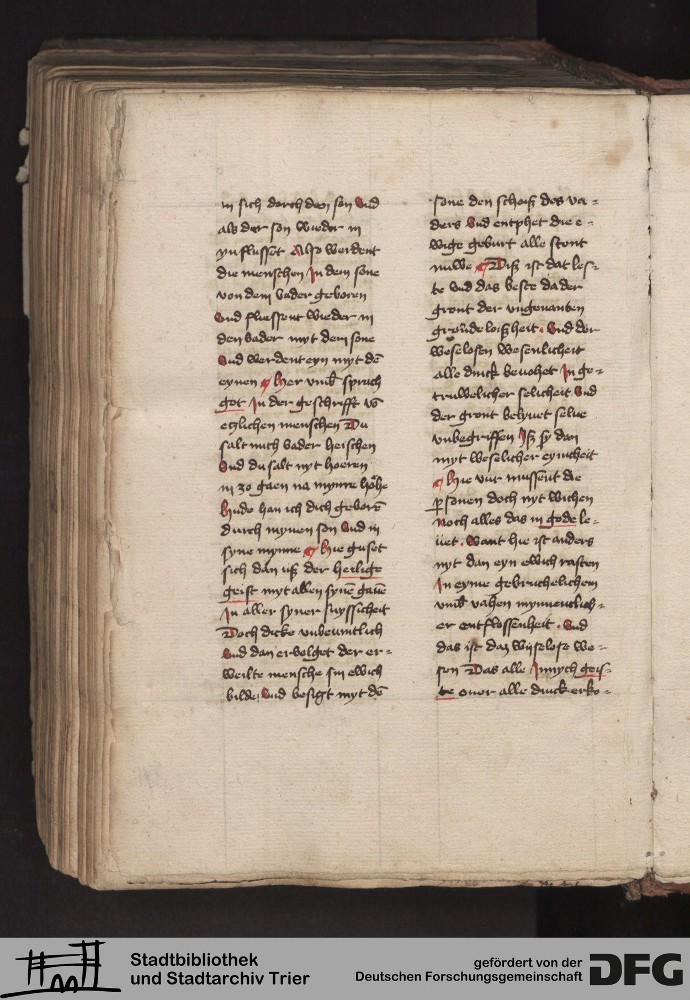 in sich dorch den son Vnd
als der son wieder in
ynflusset Also werdent
die menschen In dem sone
von dem vader geboren
Vnd fliessent wieder in
den vader myt dem sone
Vnd werdent eyn myt dē
eynen ¶ Her vmb sprich
got In der geschrifft vō
etzlichen menschen Du
salt mich vader heischen
Vnd du salt nyt hoeren
in zo gaen na mynre hohe
Hude han ich dich geborē
durch mynen son Vnd in
syne mynne ¶ Hie guset
sich dan uß der heilige
geist myt allen synē gauē
In aller syner suyssicheit
Doch dicke vnbeuintlich
Vnd dan ervolget der er=
weilte mensche sin ewich
bilde Vnd besigt myt dē
sone den schoiß des va=
ders Vnd entphet die e=
wige geburt alle stont
nuwe ¶ Diß ist dat les=
te vnd das beste da der
gront der vngenanten
grondeloißheit. Vnd der
weselosen wesenlicheit
alle dinck In ge=
truwelicher selicheit Vnd
der gront belyuet selue
vnbegriffen Iß sy dan
myt weselicher eynicheit
¶ Hie vur mussent die
ꝑsonen doch nyt wichen
Noch alles das in gode le=
uet. Want hie ist anders
nyt dan eyn ewich rasten
In eyme gebruchelichem
vmb vahen mynnentlich=
er entflossenheit. Vnd
das ist daz wyselose we=
sen Das alle Innych geis=
te ouer alle dinck erko=
Stadtbibliothek
und Stadtarchiv Trier
gefördert von der
Deutschen Forschungsgemeinschaft
DFG